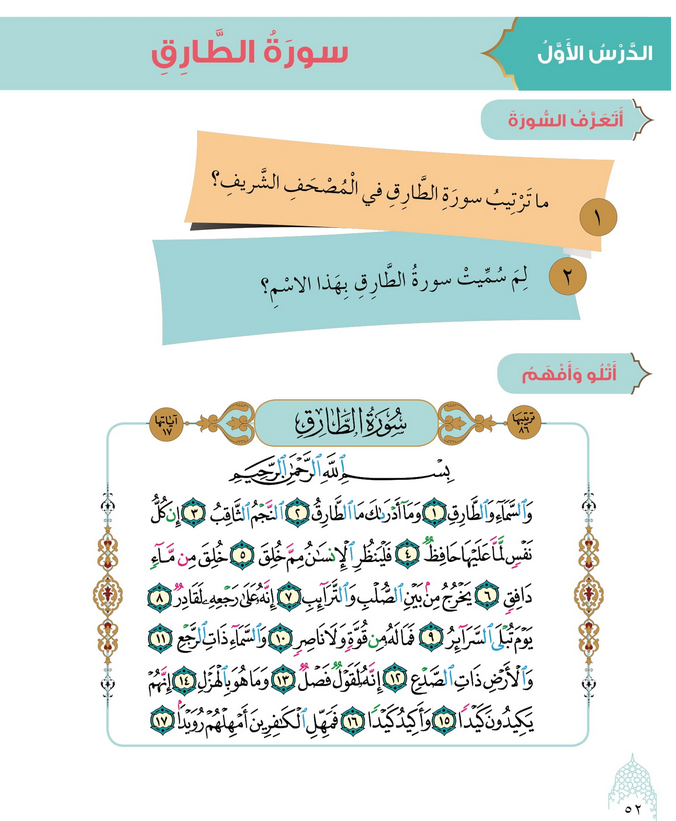 الدَّرْسُ الأَوَّلُ
سورَةُ الطَّارِقِ
أَتَعَرَّفُ السُّورَةَ
ما تَرْتِيبُ سورَةِ الطَّارِقِ في الْمُصْحَفِ الشَّريفِ؟
١
٢
لِمَ سُمِّيتْ سورةُ الطَّارِقِ بِهَذا الاسْمِ؟
أَتْلُو وَأَفْهَمُ
ترتيبها ٨٦
سُورَةُ الطَّارِقِ
آياتها ١٧
بِسْمِ اللَّهِ الرَّحْمَٰنِ الرَّحِيمِ
وَالسَّمَآءِ وَالطَّارِقِ ١ وَمَآ أَدْرَىٰكَ مَا الطَّارِقُ ٢ النَّجْمُ الثَّاقِبُ ٣ إِن كُلُّ
نَفْسٍ لَّمَّا عَلَيْهَا حَافِظٌ ٤ فَلْيَنظُرِ الْإِنسَٰنُ مِمَّ خُلِقَ ٥ خُلِقَ مِن مَّآءٍ
دَافِقٍ ٦ يَخْرُجُ مِنۢ بَيْنِ الصُّلْبِ وَالتَّرَآئِبِ ٧ إِنَّهُۥ عَلَىٰ رَجْعِهِۦ لَقَادِرٌ ٨
يَوْمَ تُبْلَى السَّرَآئِرُ ٩ فَمَا لَهُۥ مِن قُوَّةٍ وَلَا نَاصِرٍ ١٠ وَالسَّمَآءِ ذَاتِ الرَّجْعِ ١١
وَالْأَرْضِ ذَاتِ الصَّدْعِ ١٢ إِنَّهُۥ لَقَوْلٌ فَصْلٌ ١٣ وَمَا هُوَ بِالْهَزْلِ ١٤ إِنَّهُمْ
يَكِيدُونَ كَيْدًا ١٥ وَأَكِيدُ كَيْدًا ١٦ فَمَهِّلِ الْكَٰفِرِينَ أَمْهِلْهُمْ رُوَيْدًۢا ١٧
٥٢